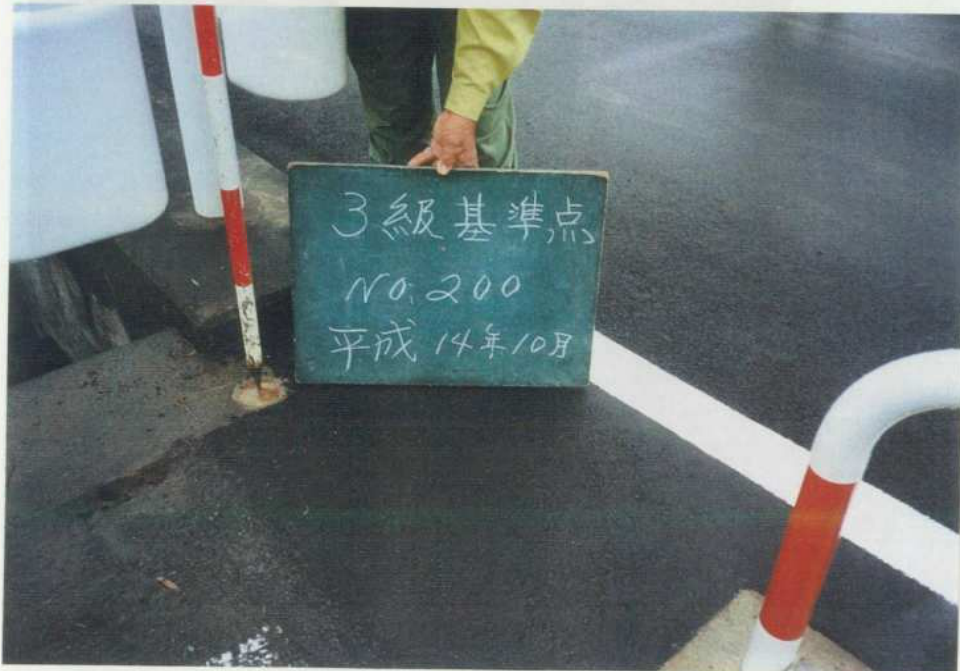 3級基準点
NO.200
平成14年10月